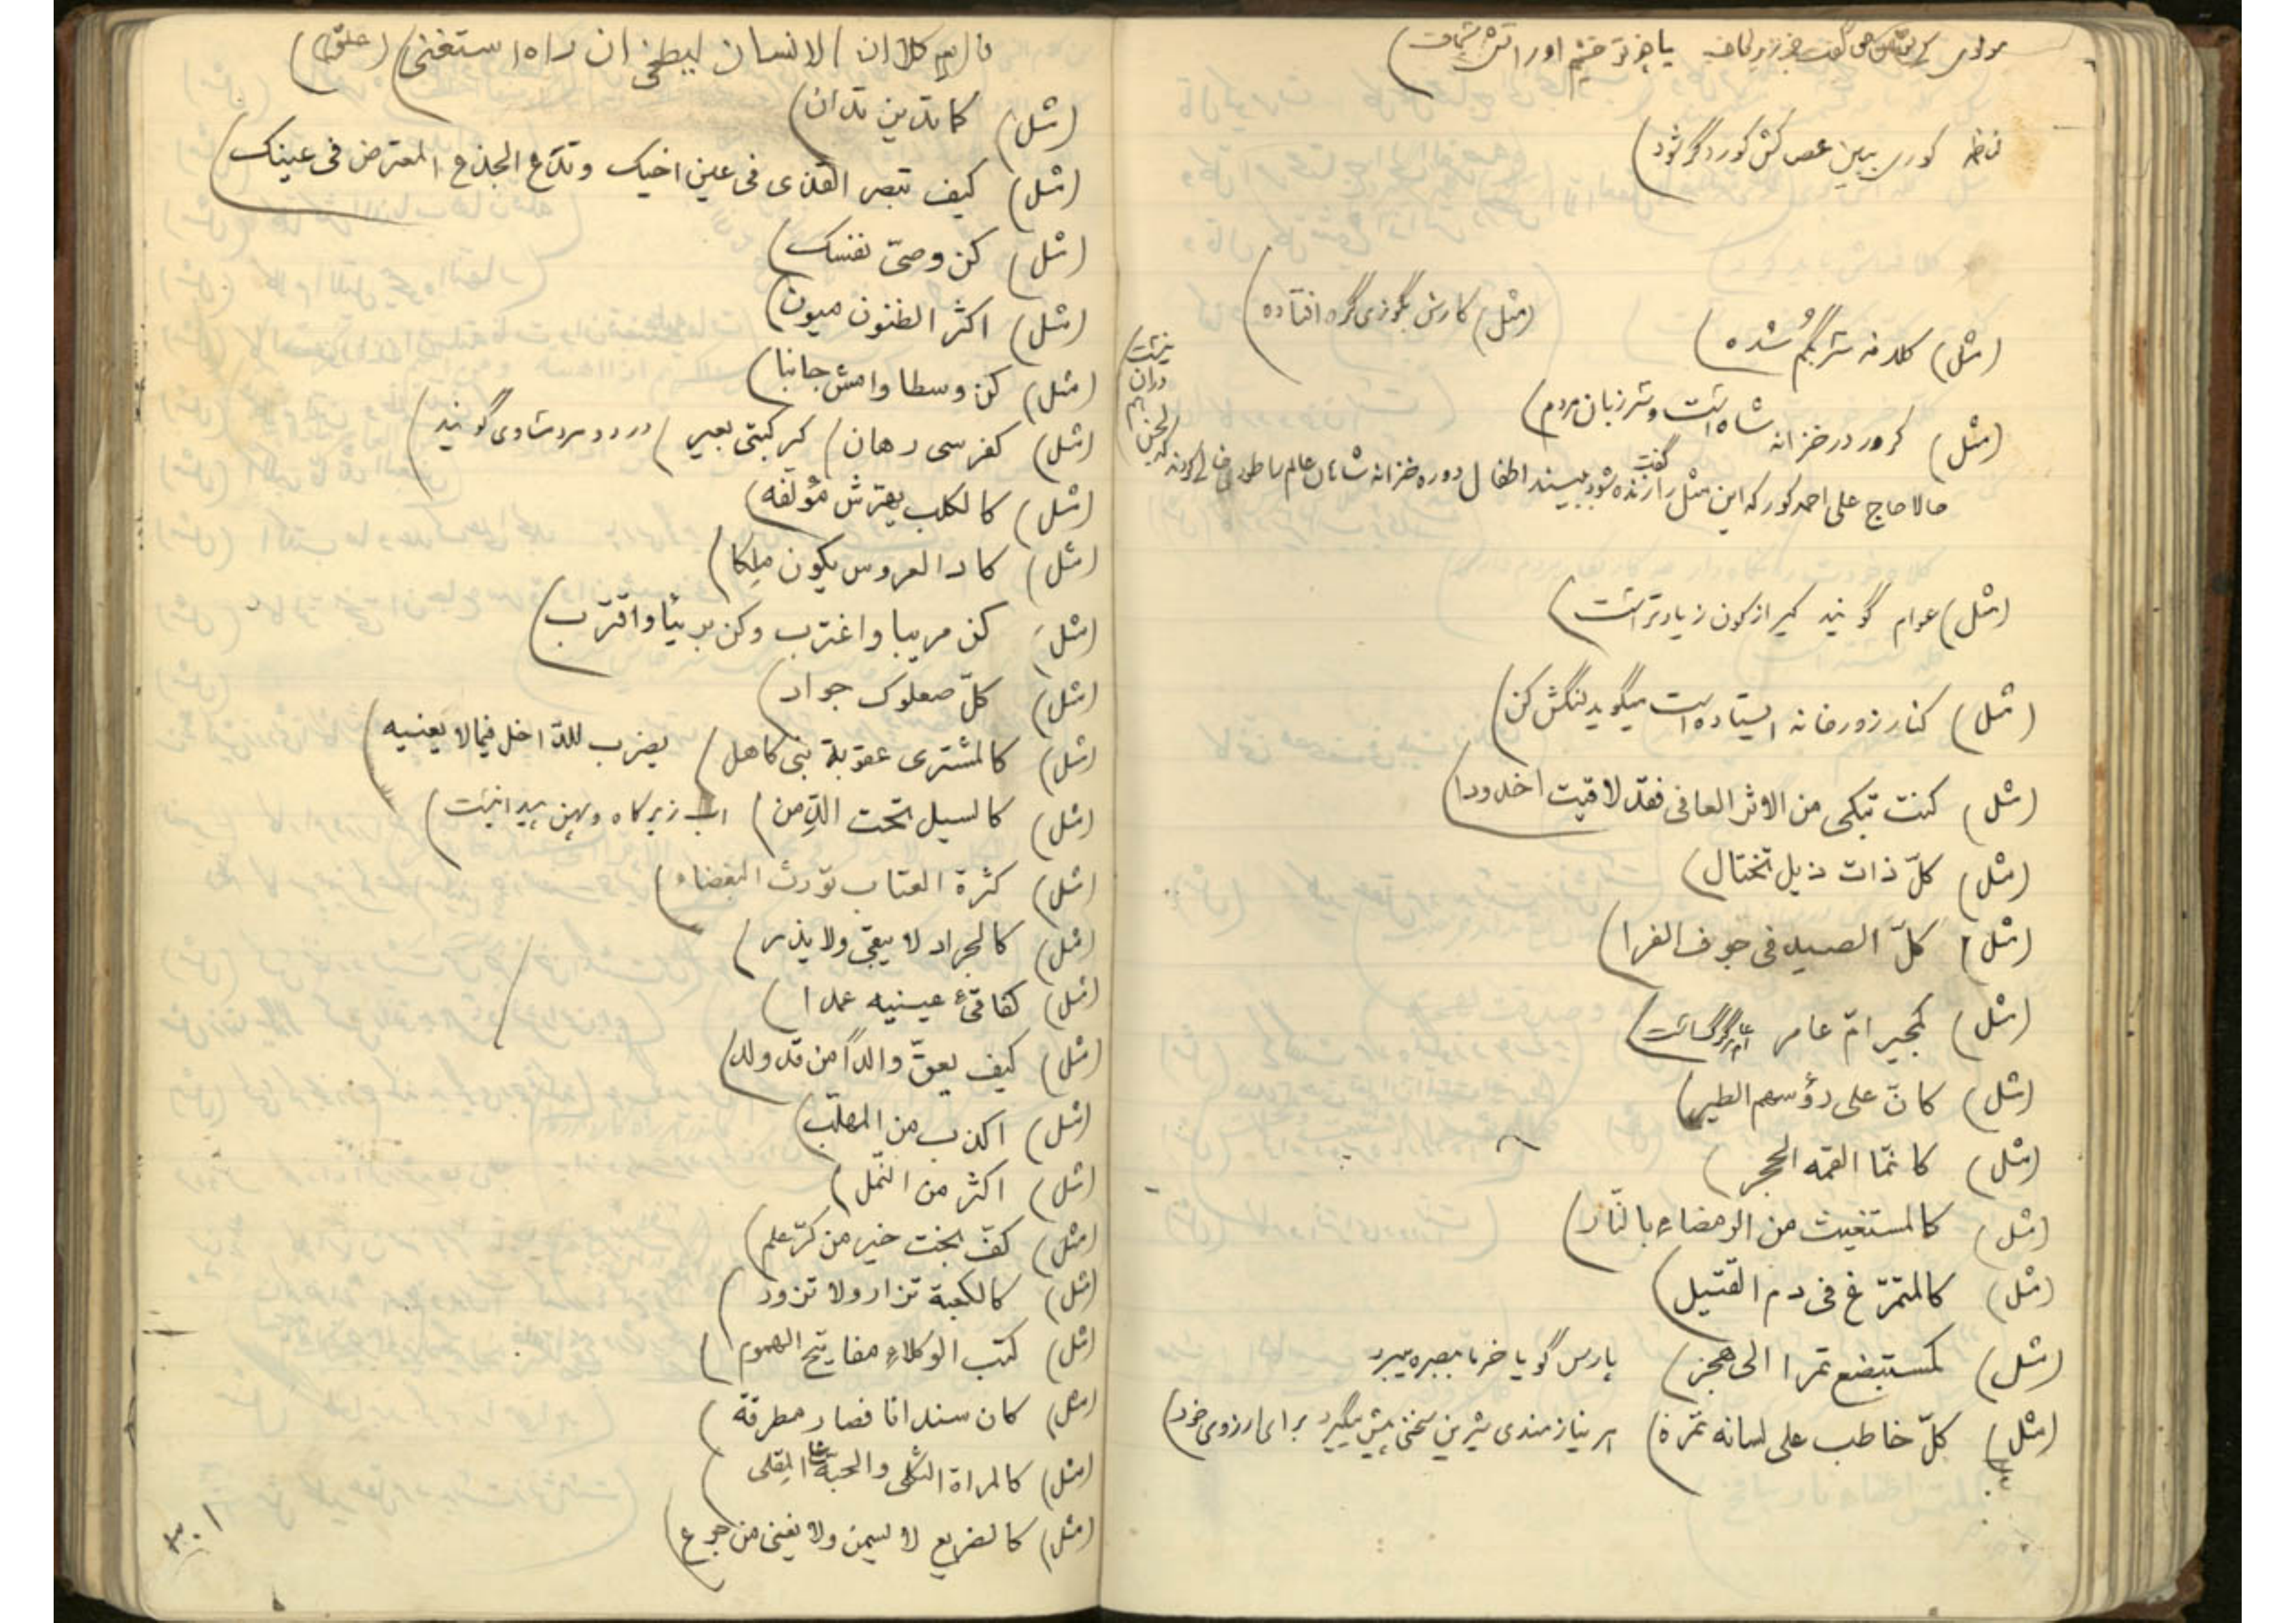 ناظم کوری ببین عصاکش کور دگر شود)
(مثل) کلامه سر بگم شده)
(مثل) کارش بگوزی گره افتاده)
(مثل) کرور در خزانه شاه است و سر زبان مردم)
حالا حاج علی احمد کور که این مثل را گفت زنده شود ببیند اطفال دوره خزانه شاهان عالم را طوری خالی کردند که
نیست
دران
(مثل) عوام گویند کیر از کون زیادتر است)
(مثل) کنار زورخانه ایستاده است میگوید لنگش کن)
(مثل) کنت تبکی من الاثر العافی فقد لاقیت اخدودا)
(مثل) کلّ ذات ذیل تختال)
(مثل) کلّ الصید فی جوف الفرا)
(مثل) کمجیر امّ عامر
(مثل) کانّ علی رؤسهم الطیر)
(مثل) کانمّا القمه الحجر)
(مثل) کالمستغیث من الرمضاء بالنّار)
(مثل) کالمتمرّغ فی دم القتیل)
(مثل) کمستبضع تمرا الی هجر) پارس گویا خرما ببصره میبرد
(مثل) کلّ خاطب علی لسانه تمرة) هر نیازمندی شیرین سخنی پیش میگیرد برای ارزوی خود)
کلا ان الانسان لیطغی ان راه استغنی) (علق)
(مثل) کما تدین تدان)
(مثل) کیف تبصر القذی فی عین اخیک و تدع الجذع المعترض فی عینک)
(مثل) کن وصیّ نفسک)
(مثل) اکثر الظنون میون)
(مثل) کن وسطا وامش جانبا)
(مثل) کفرسی رهان) کرکبتی بعیر) در دو مرد مساوی گویند)
(مثل) کالکلب یهرّش مؤلفه)
(مثل) کاد العروس یکون ملکا)
(مثل) کن مریبا واغترب وکن بریئا واقترب)
(مثل) کلّ صعلوک جواد)
(مثل) کالمشتری عقوبة بنی کاهل) یضرب للدّاخل فیما لا یعنیه)
(مثل) کالسیل تحت الدّمن) اب زیر کاه و پهن پیدا نیست)
(مثل) کثرة العتاب تورث البغضاء)
(مثل) کالجراد لا یبقی ولا یذر)
(مثل) کفاقئ عینیه عمدا)
(مثل) کیف یعقّ والدًا من قد ولد)
(مثل) اکذب من المهلّب)
(مثل) اکثر من النّمل)
(مثل) کفّ بخت خیر من کرّ علم)
(مثل) کالکعبة تزار ولا تزور)
(مثل) کتب الوکلاء مفاتیح الهموم)
(مثل) کان سندانا فصار مطرقة)
(مثل) کالمراة الثکلی والحبّة علی المقلی)
(مثل) کالضریع لا یسمن ولا یغنی من جوع)
۳۰۱